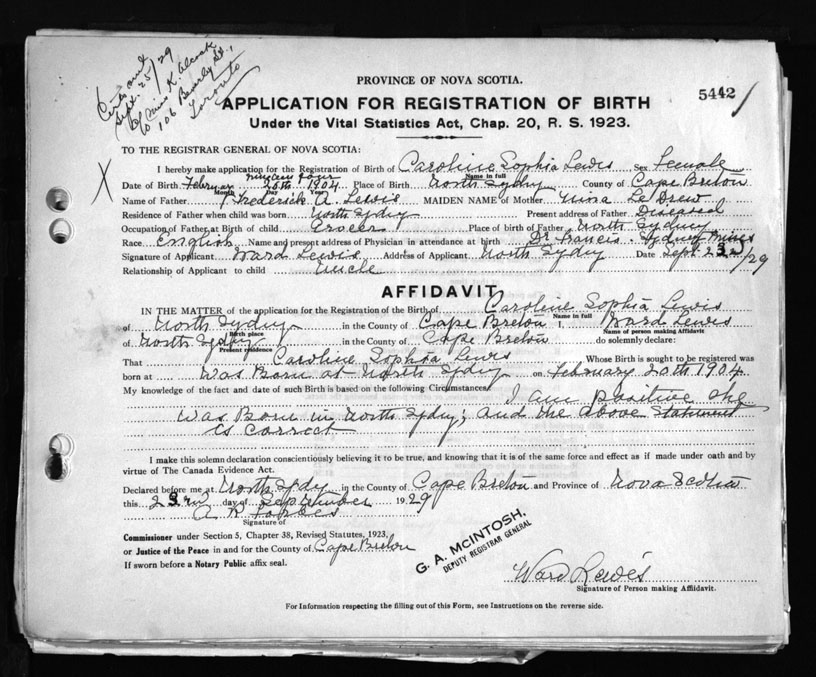 Cert. sent
Sept 25/29
to Miss K. Alcock
106 Beverly St.,
Toronto
5442
PROVINCE OF NOVA SCOTIA.
APPLICATION FOR REGISTRATION OF BIRTH
Under the Vital Statistics Act, Chap. 20, R. S. 1923.
TO THE REGISTRAR GENERAL OF NOVA SCOTIA:
X
I hereby make application for the Registration of Birth of Caroline Sophia Lewis Sex Female
Name in full
nineteen four
Date of Birth February 20th 1904 Place of Birth North Sydney County of Cape Breton
Month Day
Name of Father Frederick A. Lewis MAIDEN NAME of Mother Le Drew
Residence of Father when child was born North Sydney Present address of Father Diseased
Occupation of Father at Birth of child Grocer Place of birth of Father North Sydney
Race English Name and present address of Physician in attendance at birth Dr Francis. Sydney Mines
Signature of Applicant Ward Lewis Address of Applicant North Sydney Date Sept. 23/29
Relationship of Applicant to child Uncle
AFFIDAVIT
IN THE MATTER of the application for the Registration of the Birth of Caroline Sophia Lewis
Name in full
of North Sydney in the County of Cape Breton I, Ward Lewis
Birth place Name of person making Affidavit
of North Sydney in the County of Cape Breton do solemnly declare:
Present residence
That Caroline Sophia Lewis Whose Birth is sought to be registered was
born at Was Born at North Sydney on February 20th 1904
My knowledge of the fact and date of such Birth is based on the following Circumstances
I am positive she
was Born in North Sydney; and the above Statement
is correct
I make this solemn declaration conscientiously believing it to be true, and knowing that it is of the same force and effect as if made under oath and by
virtue of The Canada Evidence Act.
Declared before me at North Sydney in the County of Cape Breton and Province of Nova Scotia
this 23rd day of September 1929
A R Forbes
Signature of
Commissioner under Section 5, Chapter 38, Revised Statutes, 1923,
or Justice of the Peace in and for the County of Cape Breton
If sworn before a Notary Public affix seal.
G. A. McINTOSH,
DEPUTY REGISTRAR GENERAL
Ward Lewis
Signature of Person making Affidavit.
For Information respecting the filling out of this Form, see Instructions on the reverse side.